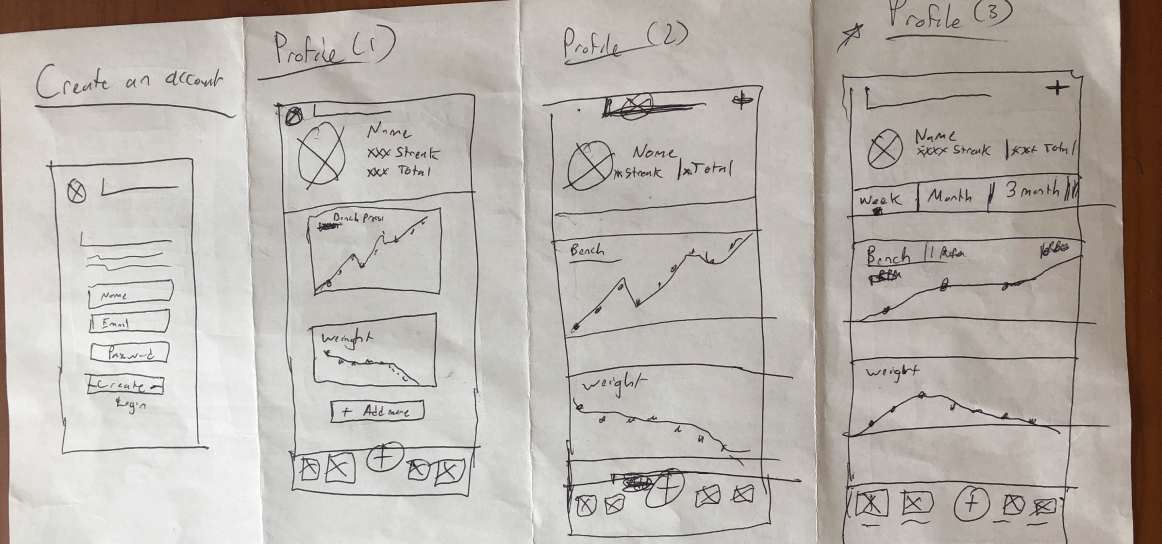 Create an account
Name
Email
Password
Create
Login
Profile (1)
Name
xxx Streak
xxx Total
Bench Press
Weight
+ Add more
+
Profile (2)
+
Name
Streak | x Total
Bench
weight
+
Profile (3)
+
Name
xxx Streak | xxx Total
Week | Month | 3 month
Bench | 1
weight
+